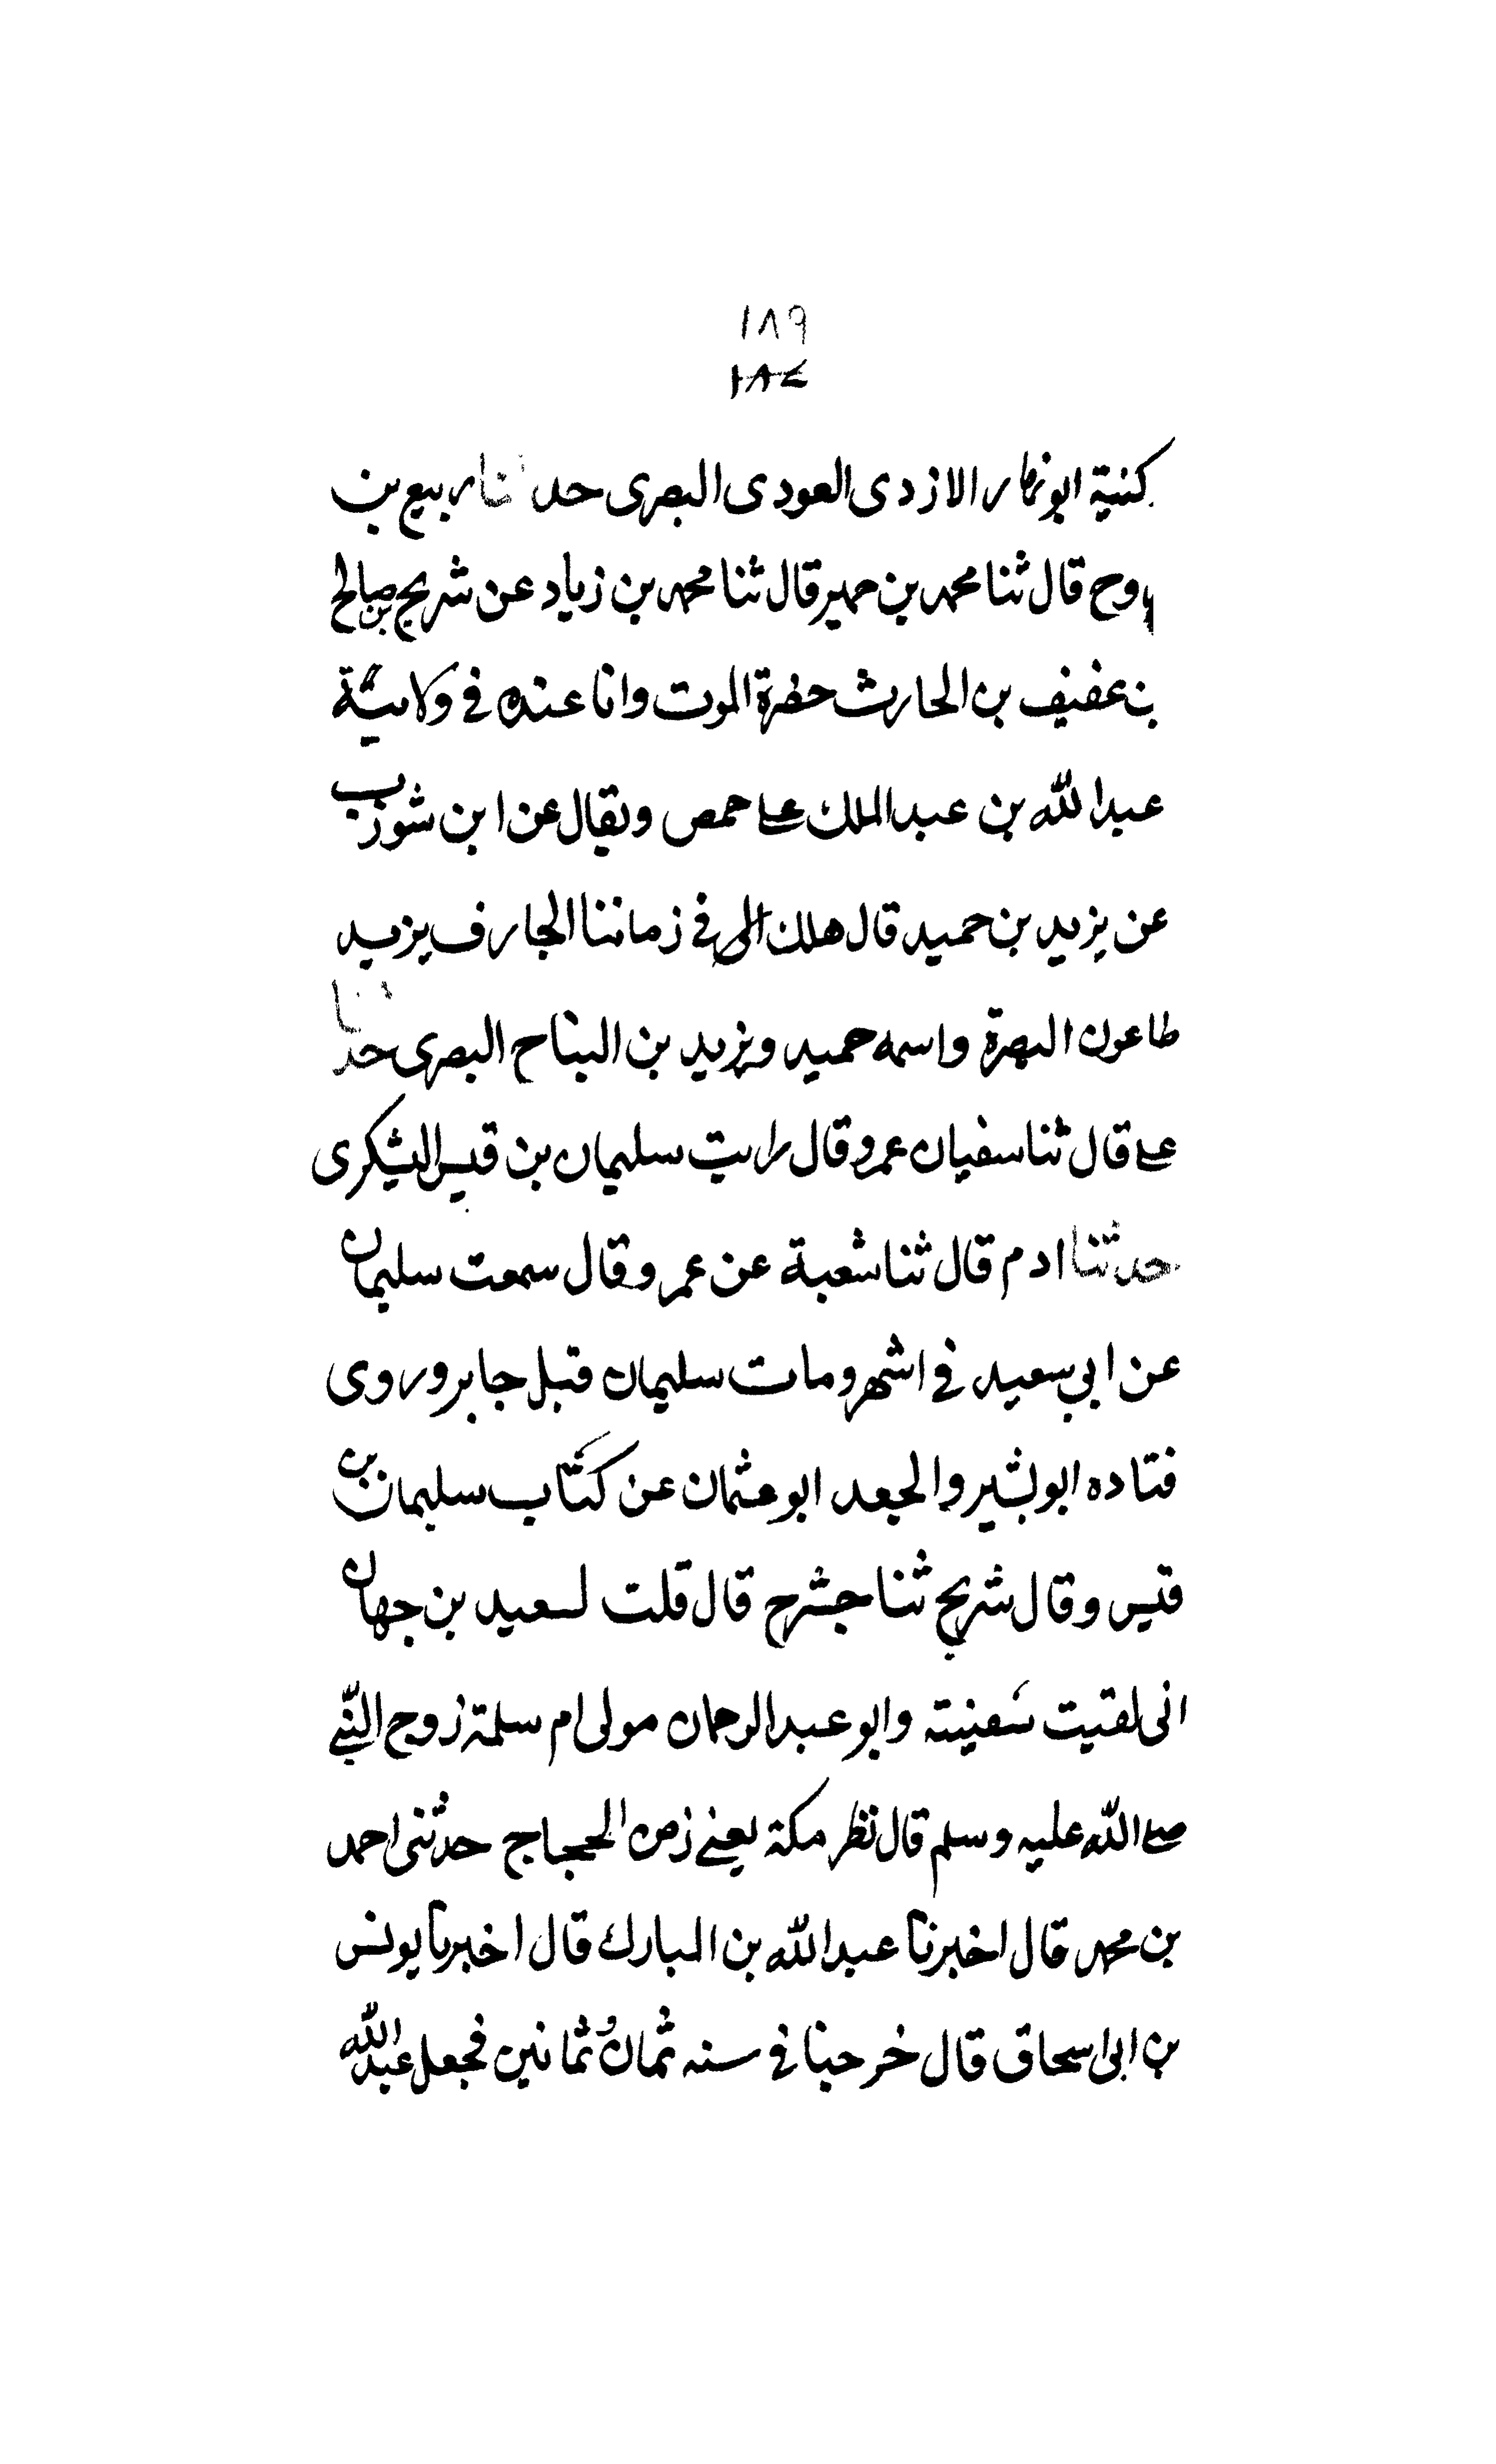 ١٨٩
كنية ابو نهار الازدى العودى البصرى حدثنا ربيع بن
روح قال ثنا محمد بن حمير قال ثنا محمد بن زياد عن شريح بن صالح
بن عفيف بن الحارث حضرة الموت وانا عنده فى ولاية
عبدالله بن عبدالملك على حمص ويقال عن ابن شوزب
عن يزيد بن حميد قال هلك فى زماننا الجارف يزيد
طاعون البصرة واسمه حميد ويزيد بن البناح البصرى حدثنا
على قال ثنا سفيان عمرو قال رايت سليمان بن قيس اليشكرى
حدثنا ادم قال ثنا شعبة عن عمرو قال سمعت سليمان
عن ابى سعيد فى اشهر ومات سليمان قبل جابر وروى
قتاده ابو بشير والجعد ابو عثمان عن كتاب سليمان بن
قيس وقال شريح ثنا حشرج قال قلت لسعيد بن جهان
انى لقيت سفينته وابو عبدالرحمان مولى ام سلمة زوج النبى
صلى الله عليه وسلم قال نظر مكة يعنى زمن الحجاج حدثنى احمد
بن محمد قال اخبرنا عبدالله بن المبارك قال اخبرنا يونس
بن ابى اسحاق قال خرجنا فى سنه ثمان وثمانين فجعل عبدالله